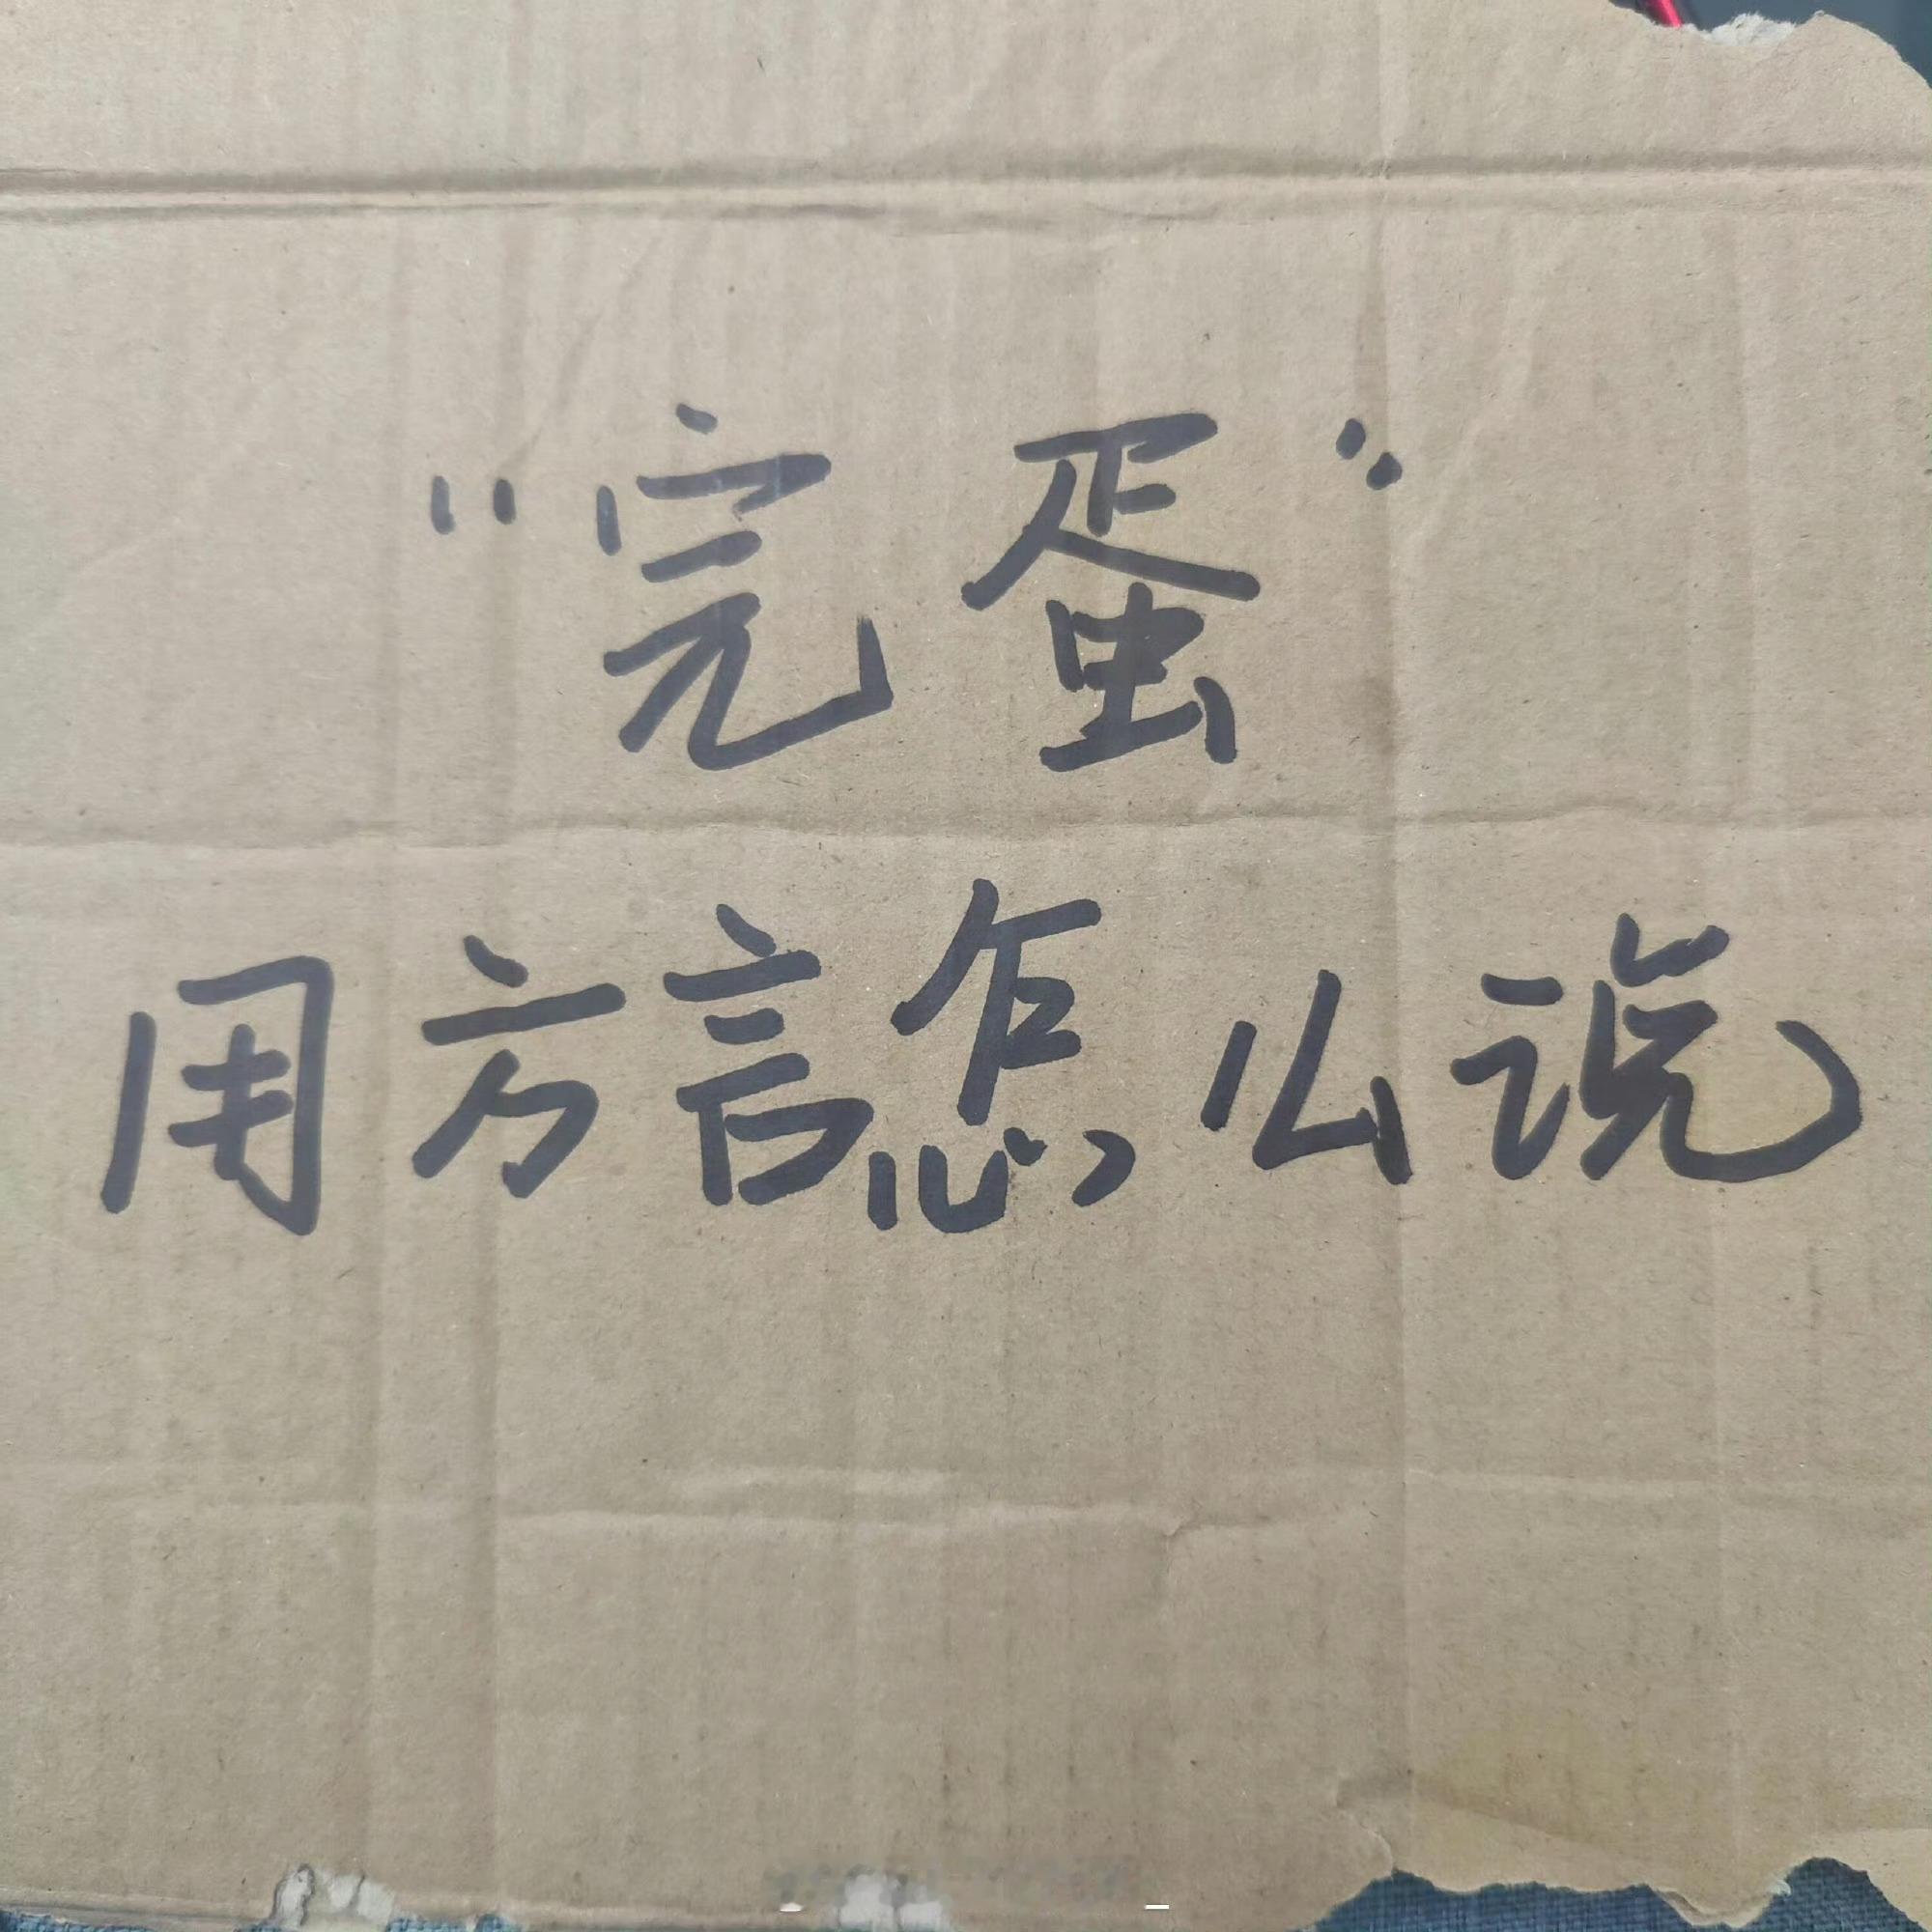 “完蛋”
用方言怎么说